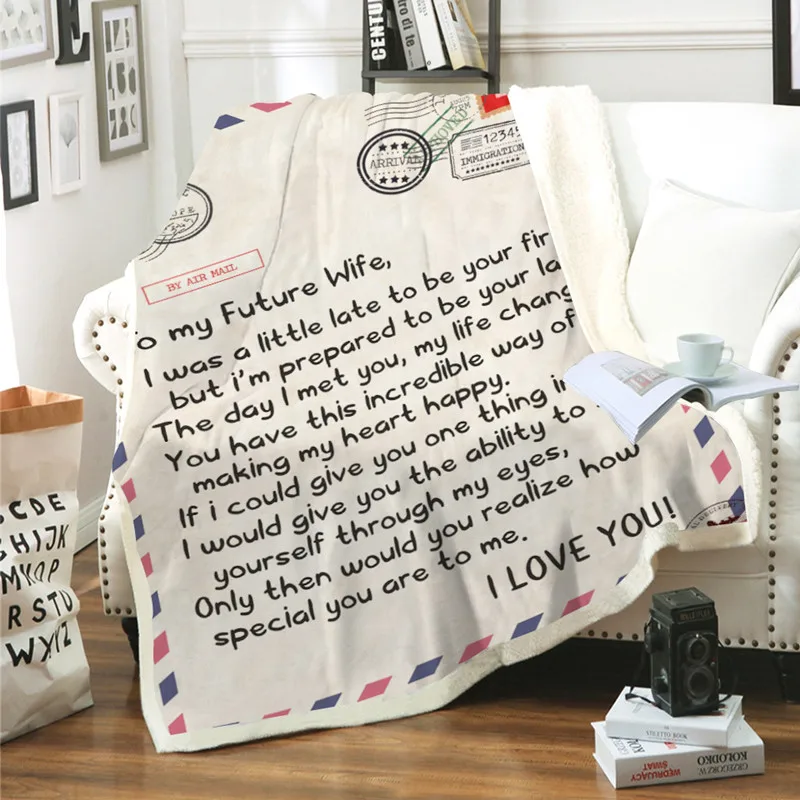 E
CENTU
tro di te
ARRIVAL
12345
IMMIGRATION
OPE
BY AIR MAIL
o my Future Wife,
I was a little late to be your fir
but i'm prepared to be your la
The day I met you, my life chang
You have this incredible way of
making my heart happy.
If i could give you one thing in
I would give you the ability to
yourself through my eyes,
Only then would you realize how
special you are to me.
I LOVE YOU!
CDE
GHIJK
MNOP
RSTU
WXYZ
GRZEGORZ
KOŁODKO
WĘDRUJĄCY
ŚWIAT